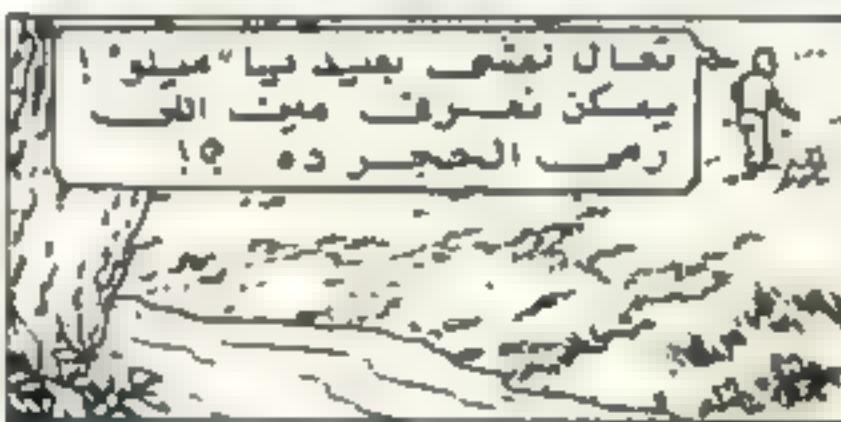 تعال نمشى بعيد بيا "ميلو" !
يمكن نعرف مين اللى
رمى الحجر ده ؟!